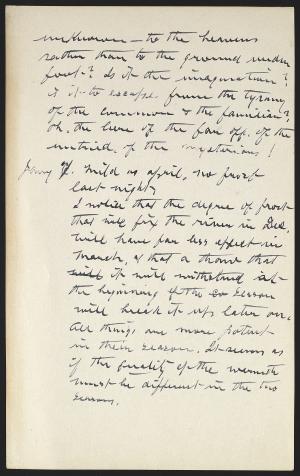 unknown — to the heavens
rather than to the ground under
foot? Is it the imagination?
Is it to escape from the tyrany
of the common & the familiar?
Oh, the lure of the far off, of the
untried, of the mysterious!
Jany 7. Mild as april, no frost
last night,
I notice that the degree of frost
that will fix the river in Dec.
will have far less effect in
March, & that a thaw that
will it will withstand at
the beginning of the co season
will break it up later on.
All things are more potent
in their season. It seems as
if the quality of the warmth
must be different in the two
seasons.